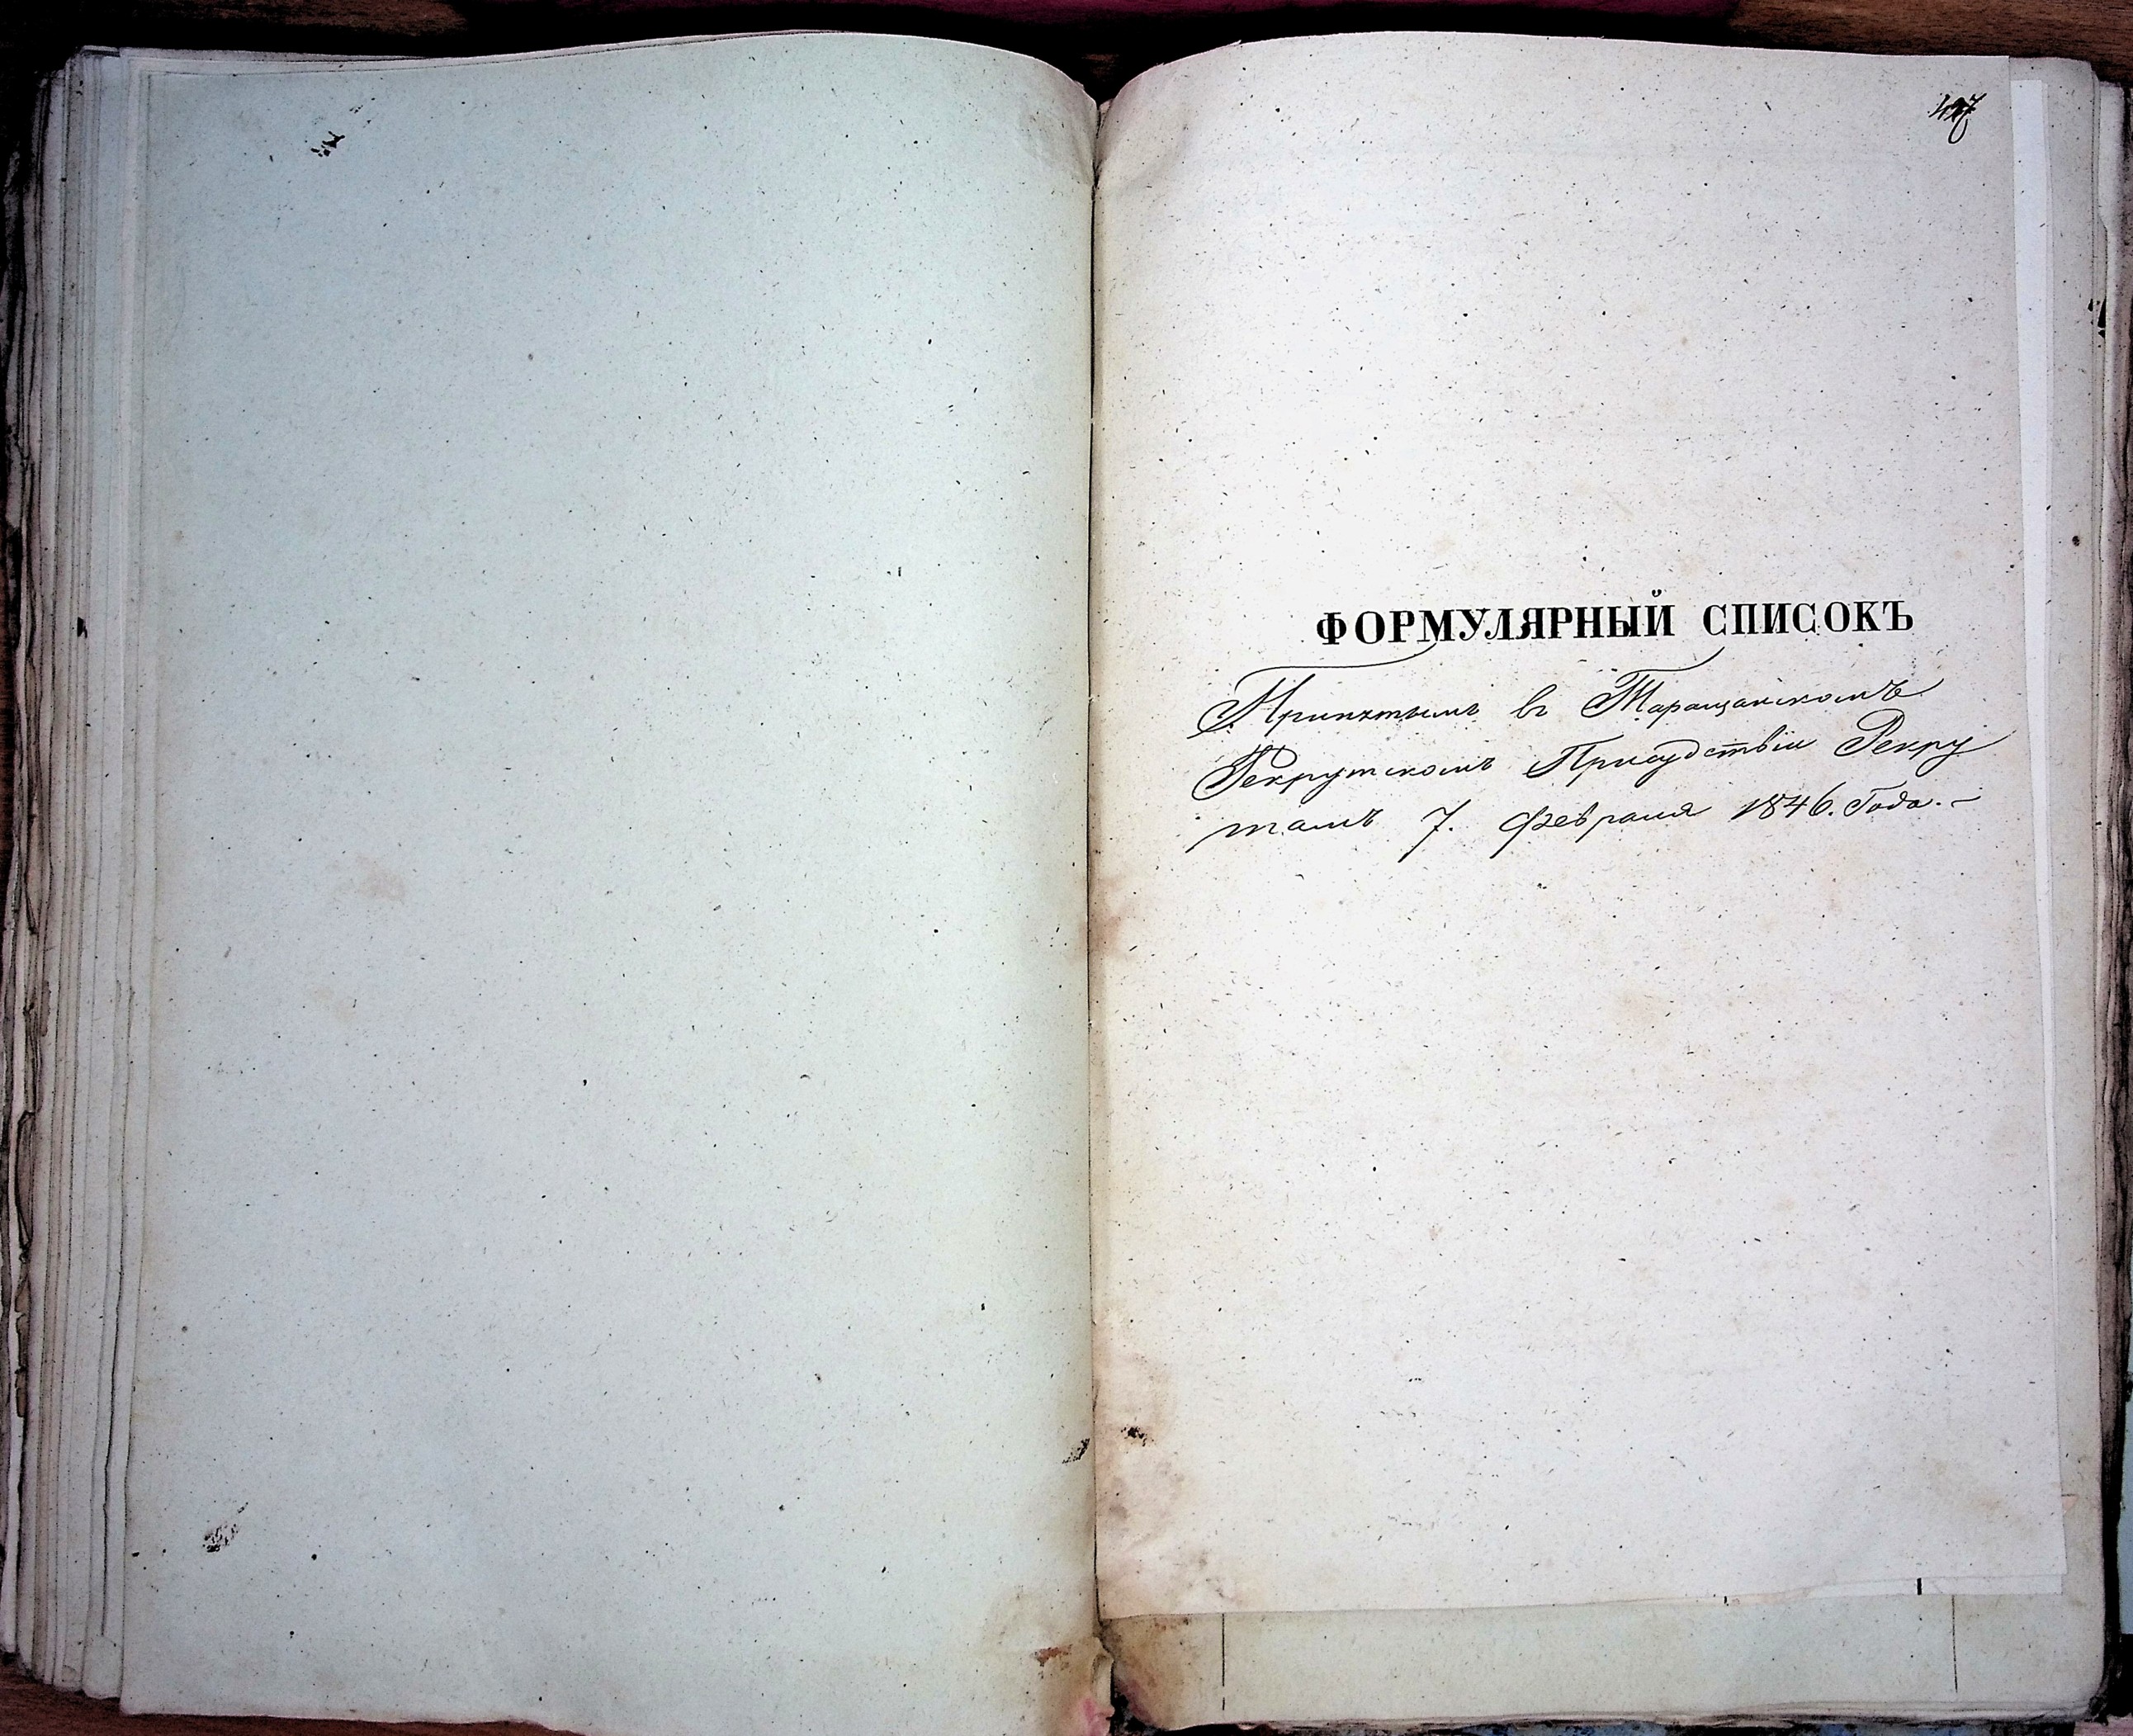 ФОРМУЛЯРНЫЙ СПИСОКЪ
Принятымъ въ Таращанскомъ
Рекрутскомъ Присудствіи Рекру
тамъ 7. Февраля 1846. Года. –